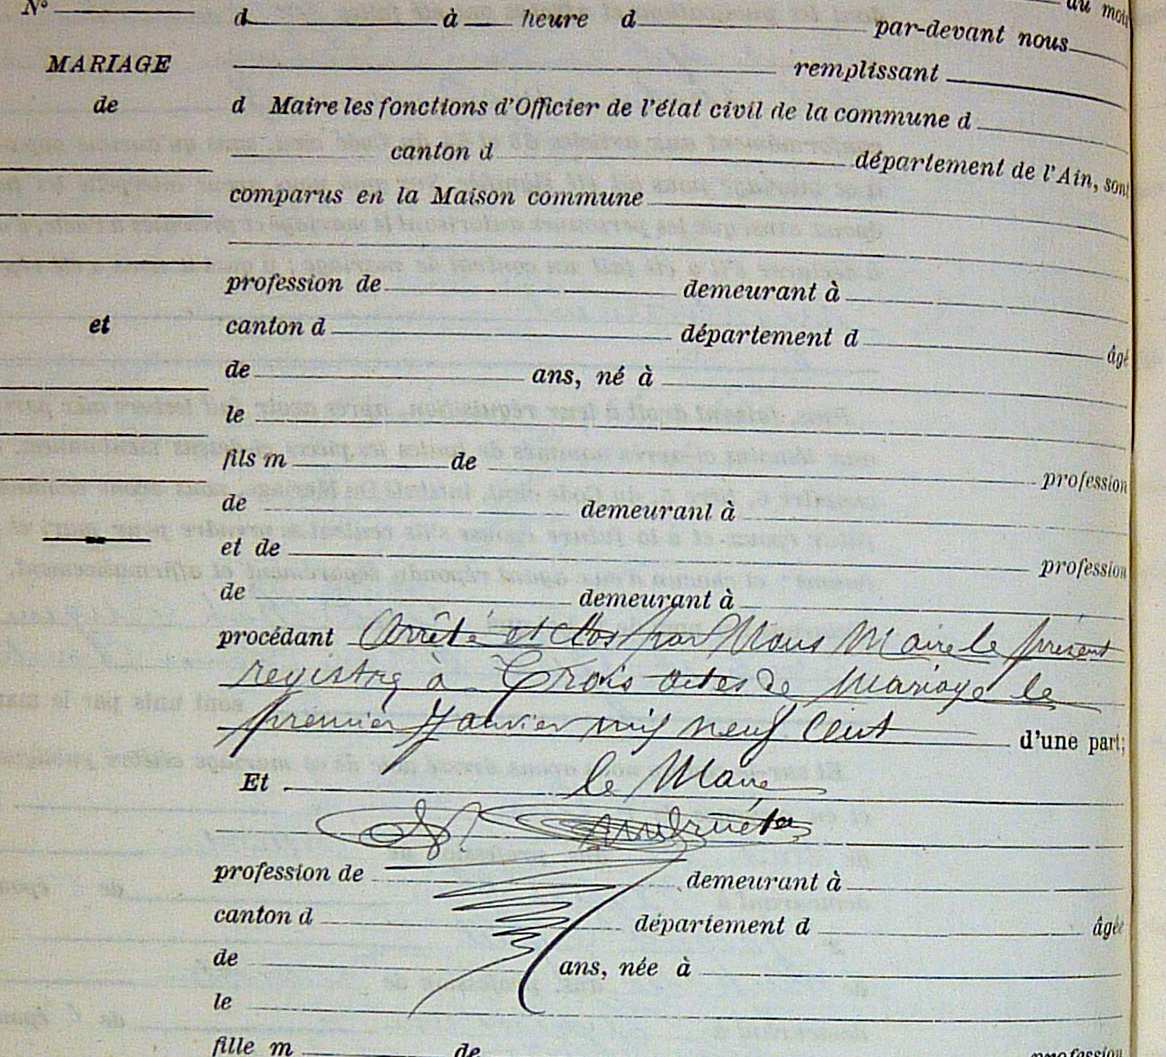 du mois
N° d à heure d par-devant nous
MARIAGE remplissant
de d Maire les fonctions d'Officier de l'état civil de la commune d
canton d département de l'Ain, sont
comparus en la Maison commune
profession de demeurant à
et canton d département d âgé
de ans, né à
le
fils m de profession
de demeurant à
et de profession
de demeurant à
procédant Arrêté et clos par Nous Maire le présent
registre à Trois actes de Mariage le
premier Janvier mil neuf Cent d'une part;
Et le Maire
profession de demeurant à
canton d département d âgée
de ans, née à
le
fille m de profession